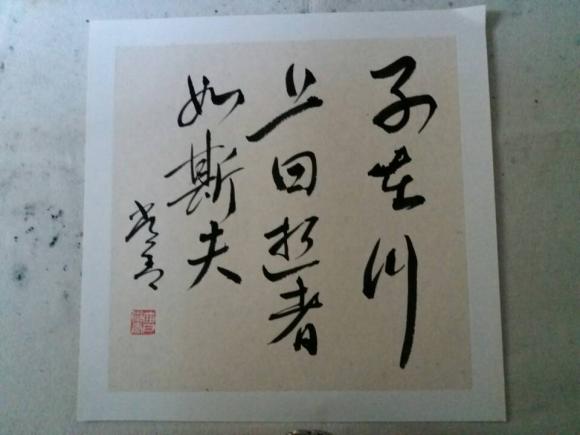 子在川
上曰逝者
如斯夫